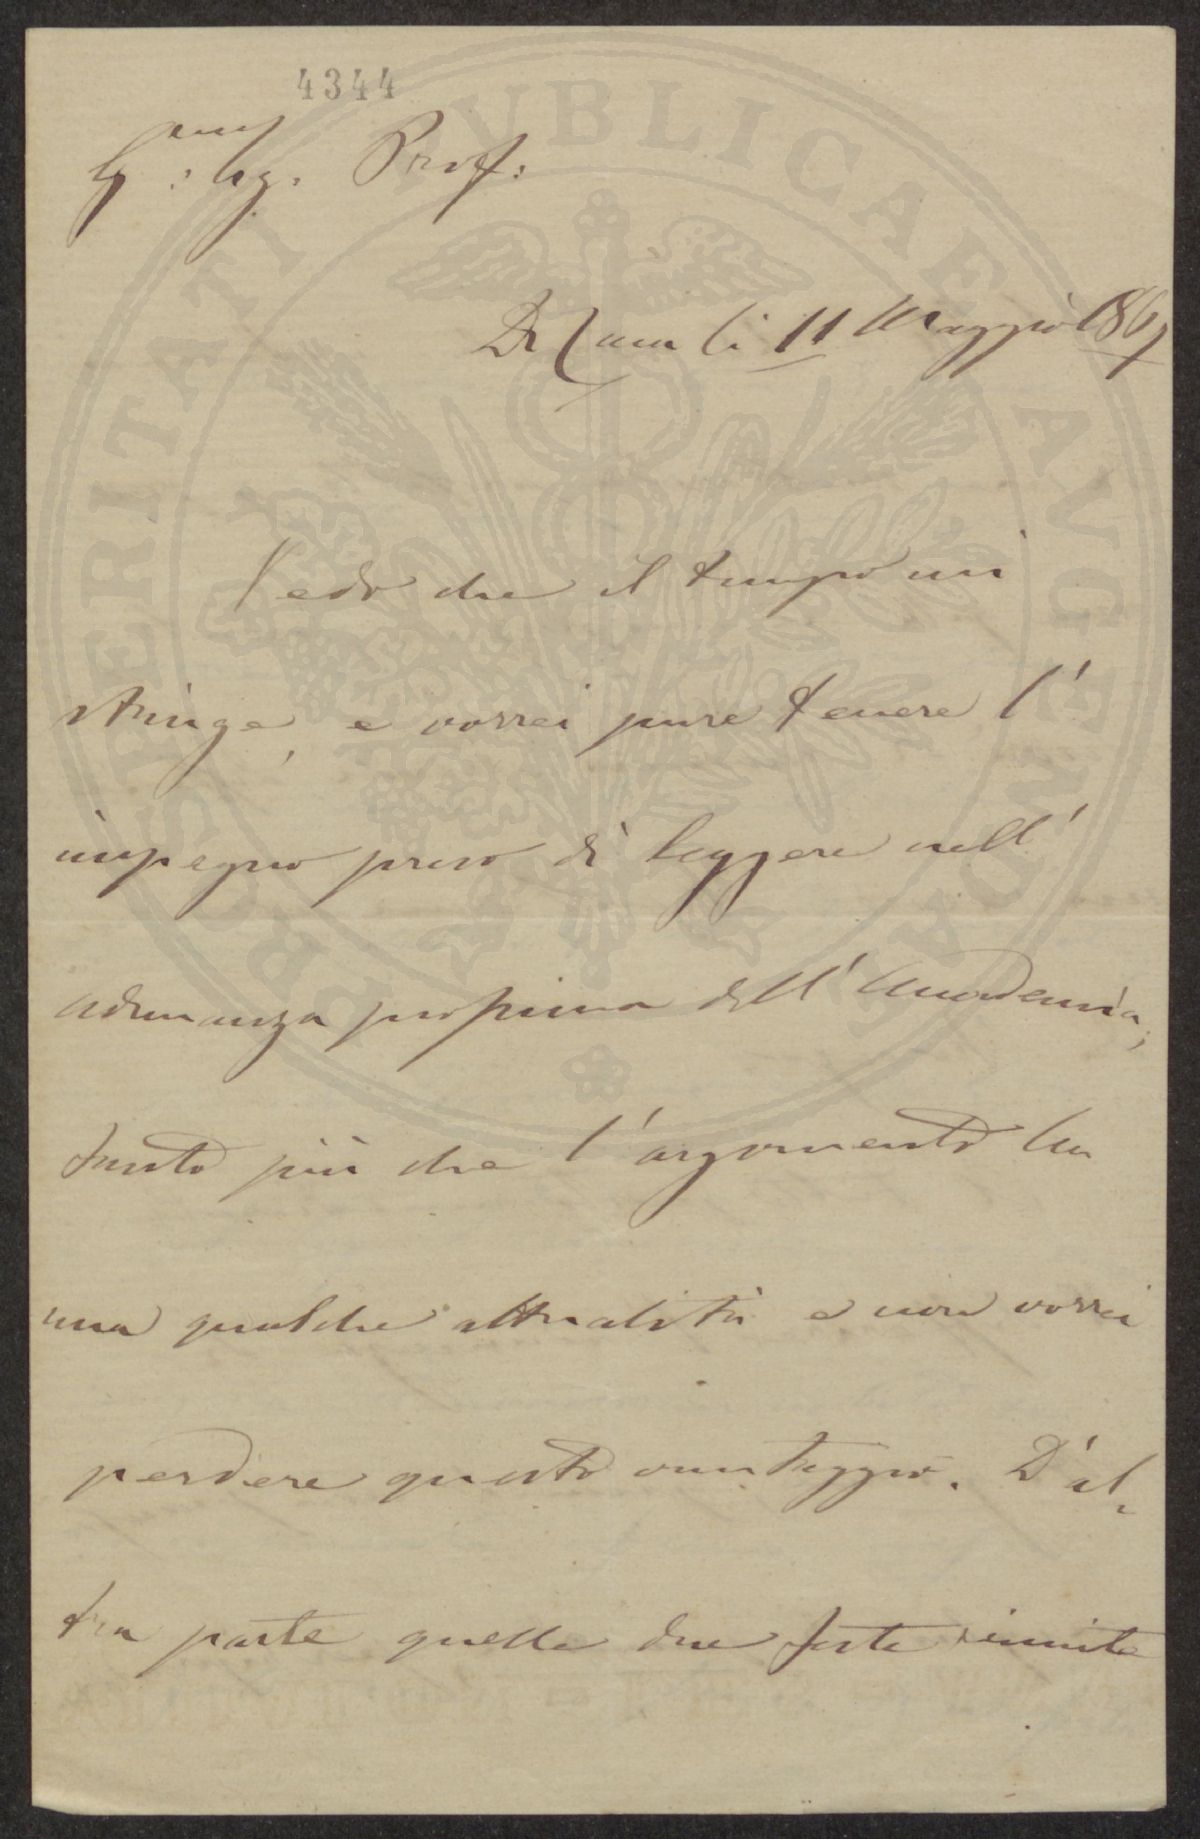 4344
Sig. Prof:
Di Casa li 11 Maggio 1867
Vedo che il tempo mi
stringe, e vorrei pure tenere l'
impegno preso di leggere nell'
adunanza prossima dell'Accademia,
tanto più che l'argomento ha
una qualche attualità e non vorrei
perdere questo vantaggio. D'al-
tra parte quelle due feste riunite
PROSPERITATI PVBLICAE AVGENDAE